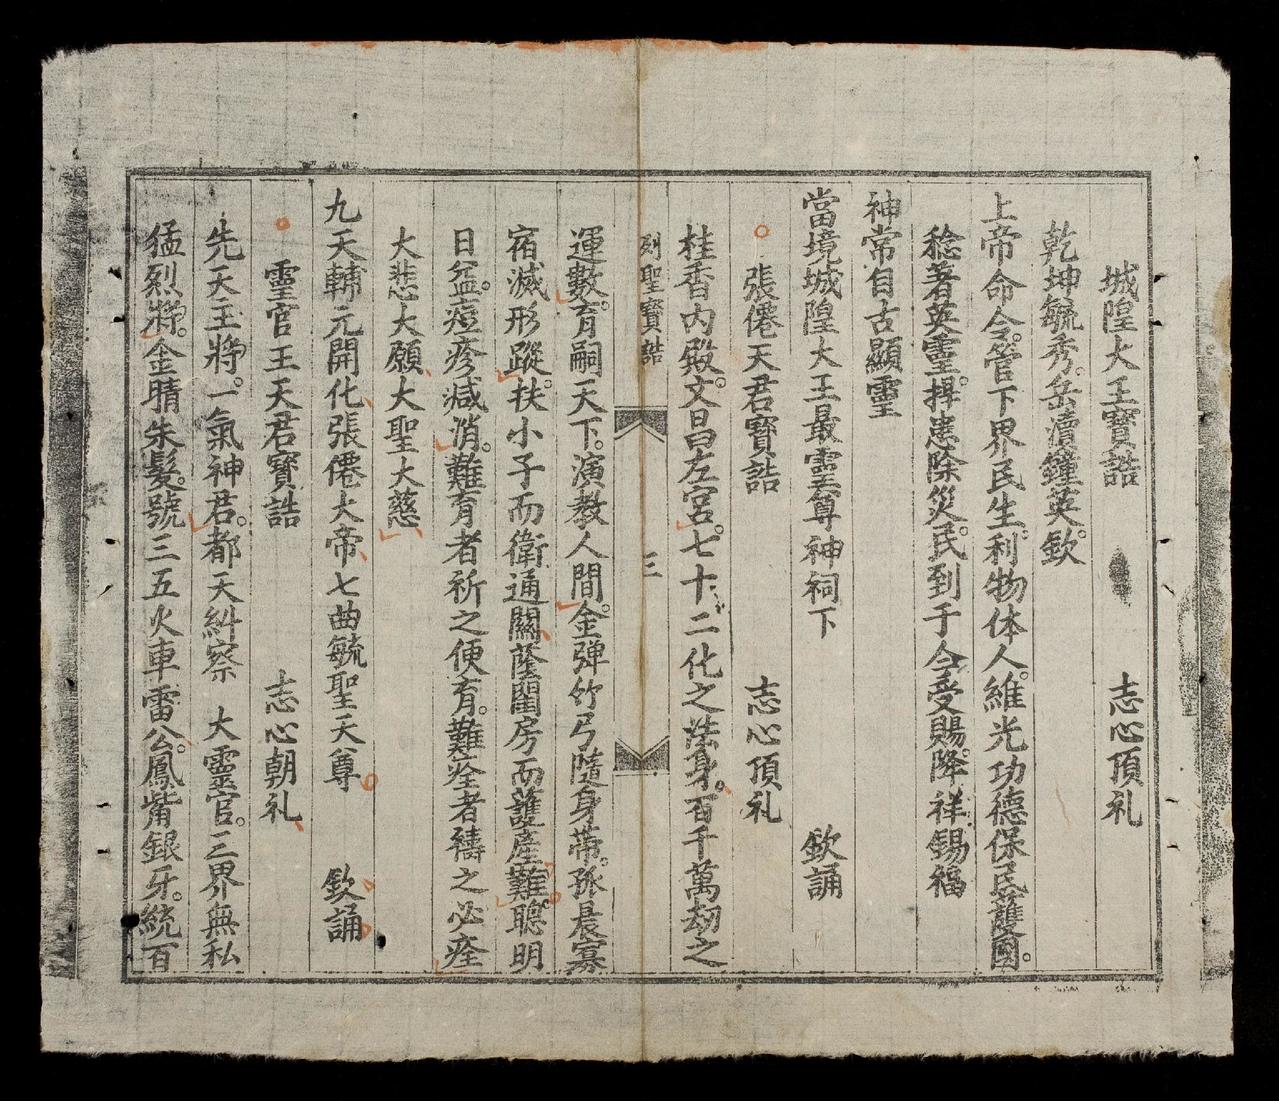 城隍大王寶誥　志心頂礼
乾坤毓秀。岳瀆鐘英。欽
上帝命令。管下界民生。利物体人。維光功德保民護國。
稔著英靈。捍患除災。民到于今受賜。降祥錫福
神常自古顯靈
當境城隍大王最靈尊神祠下　欽誦
張僊天君寶誥　志心頂礼
桂香内殿。文昌左宮。七十二化之法身。百千萬劫之
列聖寶誥　三
運數。育嗣天下。演教人間。金弹竹弓隨身帶。孤晨寡
宿滅形蹤。扶小子而衛通關。蔭閨房而護產難。聰明
日益。痘疹减消。難育者祈之便育。難痊者禱之必痊
大悲大願大聖大慈
九天輔元開化張僊大帝七曲毓聖天尊　欽誦
靈官王天君寶誥　志心朝礼
先天主將。一氣神君。都天糾察　大靈官。三界無私
猛烈將。金睛朱髮。號三五火車雷公。鳳觜銀牙。統百